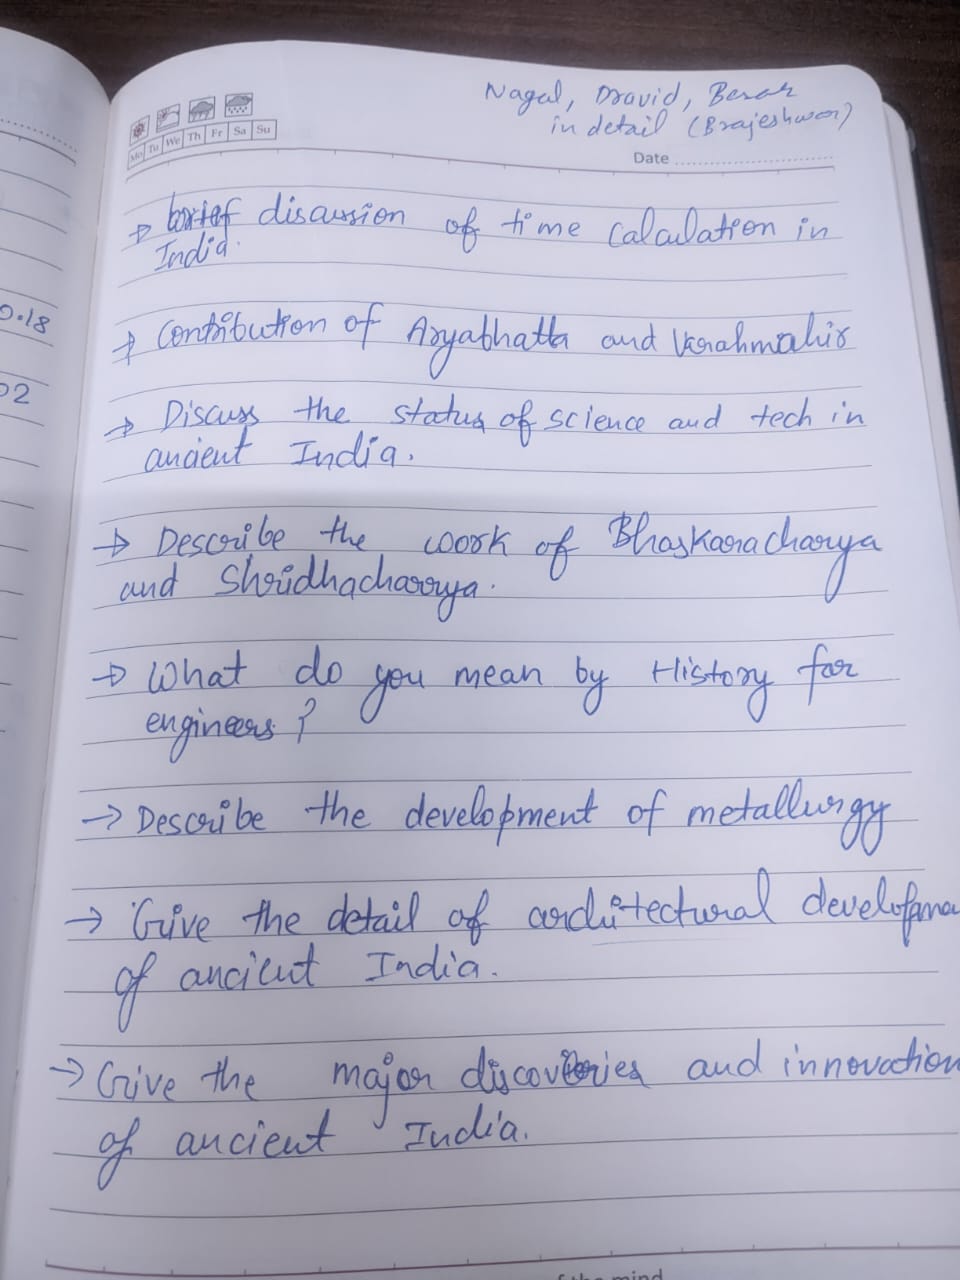 Nagal, Dravid, Besar
in detail (Brajeshwar)
Mo Tu We Th Fr Sa Su
Date
→ brief discussion of time calculation in
India.
→ Contribution of Aryabhatta and Varahmahir
→ Discuss the status of science and tech in
ancient India.
→ Describe the work of Bhaskaracharya
and Shridhacharya.
→ What do you mean by History for
engineers?
→ Describe the development of metallurgy
→ Give the detail of architectural developme
of ancient India.
→ Give the major discoveries and innovation
of ancient India.
0.18
02